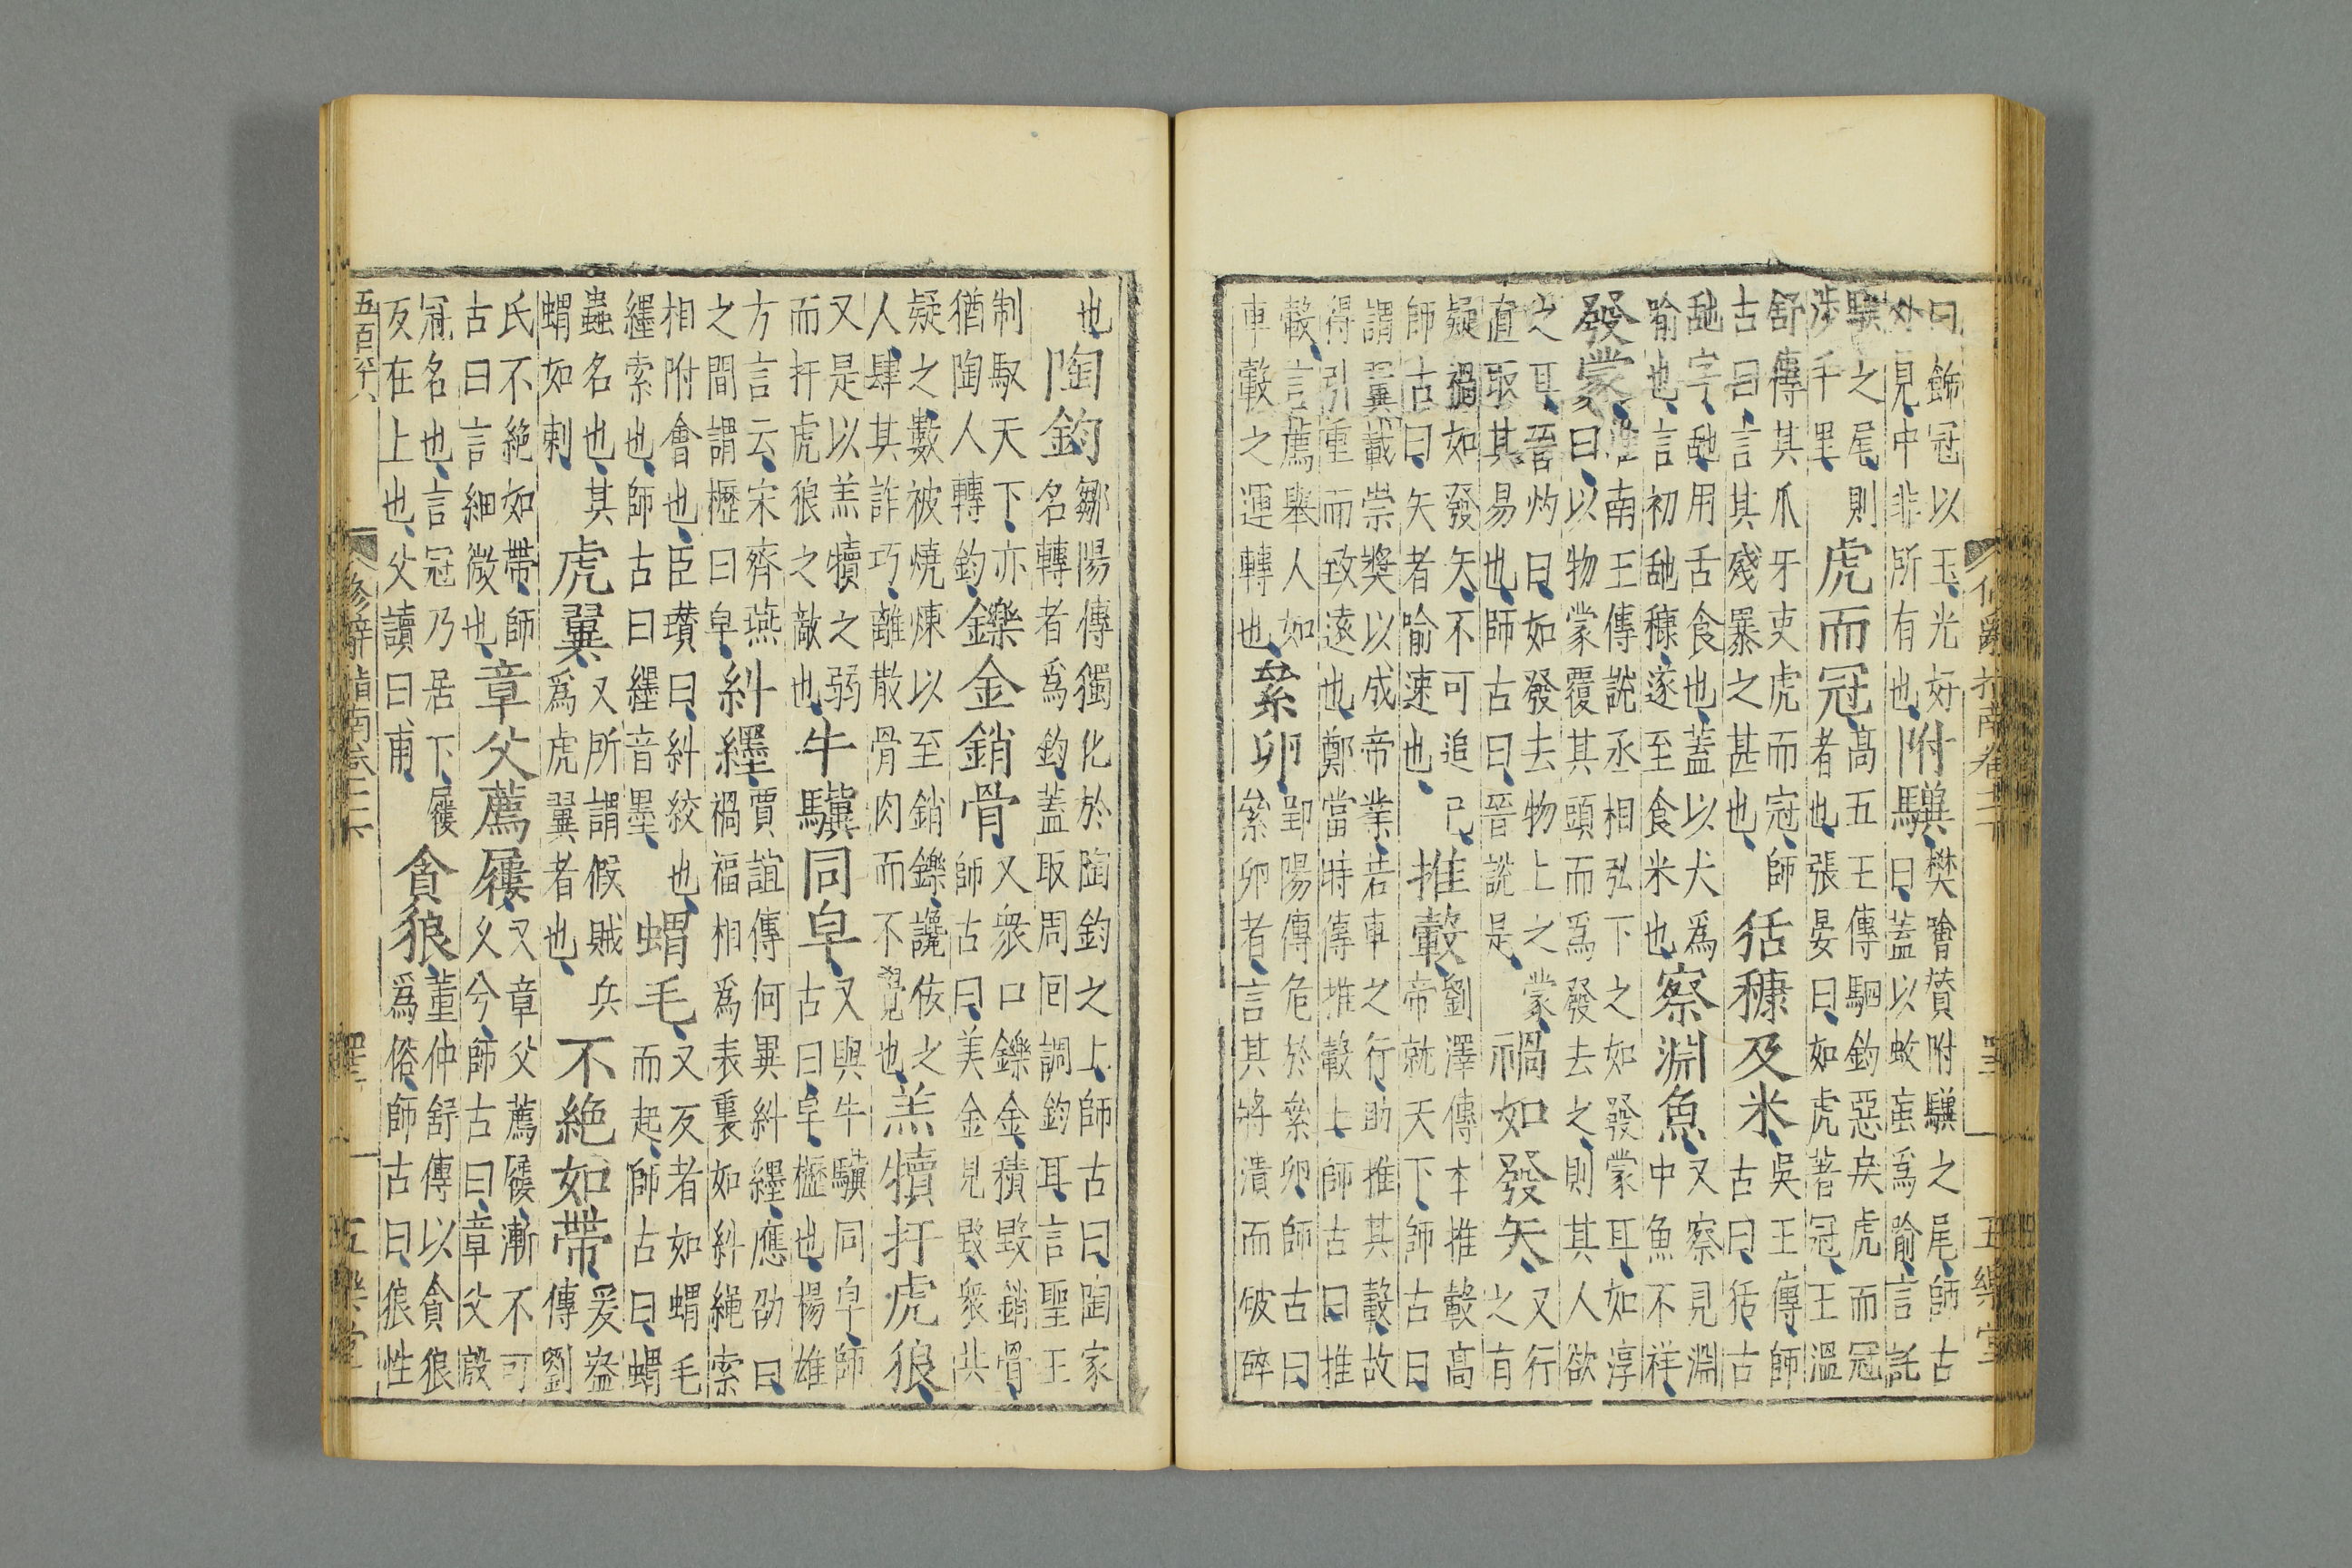 曰飾冠以玉光好外見中非所有也附驥樊噲贊附驥之尾師古曰蓋以蚊䖟為喻言託
驥之尾則涉千里虎而冠高五王傳駟鈞惡戾虎而冠者也張晏曰如虎著冠王溫
舒傳其爪牙吏虎而冠師古曰言其殘暴之甚也䑛穅及米吳王傳師古曰䑛古
䑛字䑛用舌食也蓋以犬為喻也言初䑛穅遂至食米也察淵魚又察見淵中魚不祥
發蒙淮南王傳說丞相弘下之如發蒙耳如淳曰以物蒙覆其頭而為發去之則其人欲
之耳晉灼曰如發去物上之蒙直取其易也師古曰晉說是禍如發矢又行之有
疑禍如發矢不可追已師古曰矢者喻速也推轂劉澤傳本推轂高帝就天下師古曰
謂翼戴崇奬以成帝業若車之行助推其轂故得引重而致遠也鄭當時傳推轂士師古曰推
轂言薦舉人如車轂之運轉也絫卵鄒陽傳危於絫卵師古曰絫卵者言其將潰而破碎
也陶鈞鄒陽傳獨化於陶鈞之上師古曰陶家名轉者為鈞蓋取周回調鈞耳言聖王
制馭天下亦猶陶人轉鈞鑠金銷骨又衆口鑠金積毀銷骨師古曰美金見毀衆共
疑之數被燒煉以至銷鑠讒佞之人肆其詐巧離散骨肉而不覺也羔犢扞虎狼
又是以羔犢之弱而扞虎狼之敵也牛驥同皁又與牛驥同皁師古曰皁櫪也楊雄
方言云宋齊燕之間謂櫪曰皁糾纆賈誼傳何異糾纆應劭曰禍福相為表裏如糾繩索
相附會也臣瓚曰糾絞也纆索也師古曰纆音墨蝟毛又反者如蝟毛而起師古曰蝟
蟲名也其蝟如刺虎翼又所謂假賊兵為虎翼者也不絕如帶爰盎傳劉
氏不絕如帶師古曰言細微也章父薦屨又章父薦屨漸不可乆兮師古曰章父殷
冠名也言冠乃居下屨反在上也父讀曰甫貪狼董仲舒傳以貪狼為俗師古曰狼性
修辭指南卷三